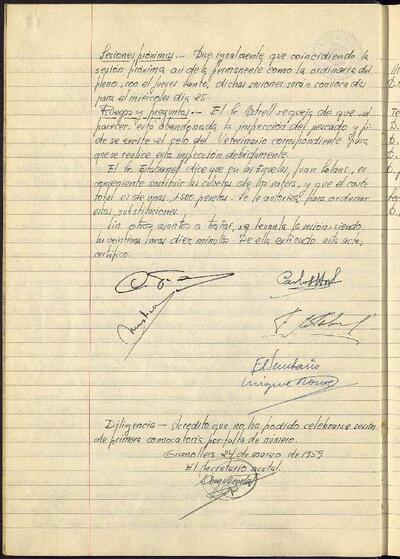 Sesiones próximas.- Que igualmente, que coincidiendo la
sesión próxima así de la permanente como la ordinaria del
pleno, con el jueves santo, dichas sesiones seran convocadas
para el miércoles dia 25.
Ruegos y preguntas.- El Sr. Botrell se queja de que, al
parecer, esta abandonada la inspección del pescado y pi-
de se excite el celo del Veterinario correspondiente para
que se realice esta inspección debidamente.
El Sr. Estabanell dice que en las Escuelas Juan Solans, es
conveniente sustituir las cubetas de los waters, y que el coste
total es de unas 1.500 pesetas. Se le autoriza para ordenar
estas substituciones.
Sin otros asuntos a tratar, se levanta la sesión, siendo
las veintiuna horas diez minutos. De ella extiendo esta acta,
certifico.
El Secretario
Diligencia - Acredito que no ha podido celebrarse sesión
de primera convocatoria por falta de número.
Granollers 24 de marzo de 1959
El Secretario acctal.